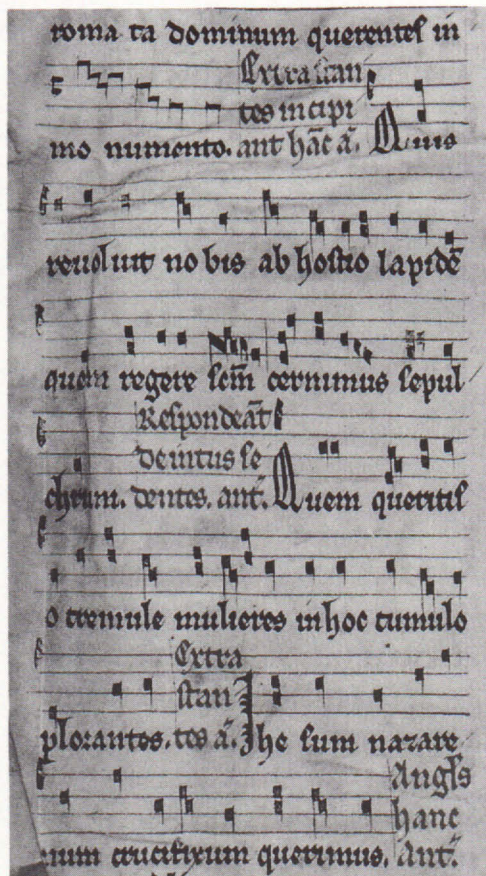 roma ta dominum querentes in
Extra stan
tes incipi
mo numento. ant hāc ā. Quis
reuoluit no bis ab hostio lapidē
quem tegere scm̄ cernimus sepul
Respondeāt
deintus se
chrum. dentes. ant. Quem queritis
o tremule mulieres in hoc tumulo
Extra
stan
plorantes. tes ā. Ihe sum nazare
Angls
hanc
num crucifixum querimus. Ant.